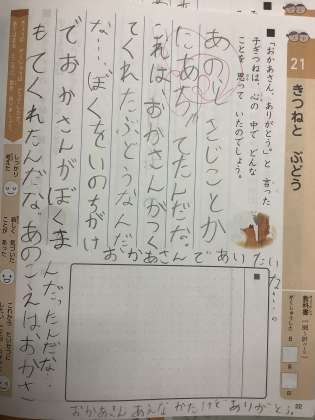 21
きつねと ぶどう
「おかあさん、ありがとう。」と 言った
子ぎつねは、心の 中で どんな
ことを 思って いたのでしょう。
にあたがってたんだな。
これは、おかさんがつく
てくれたぶどうなんだ
な…ぼくをいのちがけ
でおかさんがぼくま
もてくれたんだな。あのこえはおかさ
んだったんだな…
おかあさんであいたいな…。
おかあさんあえなかたけどありがとう。
しっかり
考えた
新しく 気づいた
ことが あった
これから
教科書
22